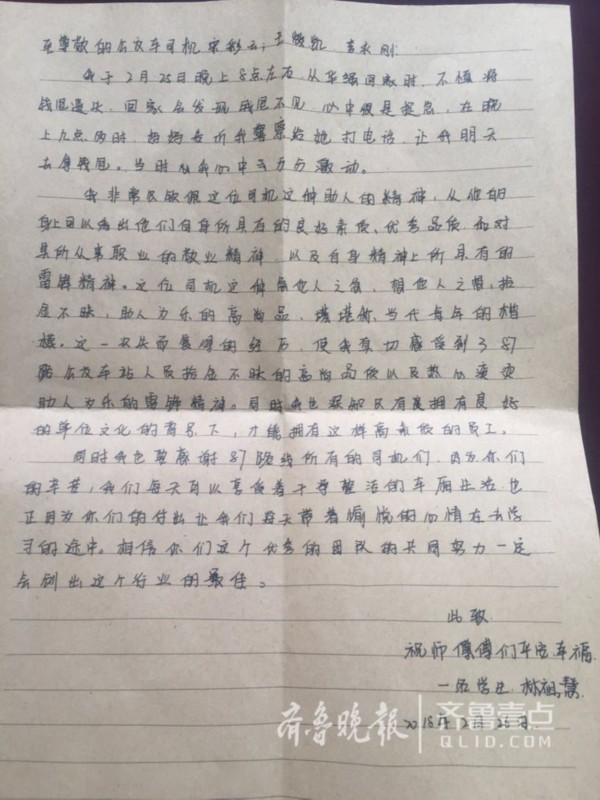 至尊敬的公交车司机宋彩云,王俊凯 李永刚
我于2月25日晚上8点左右,从华强回家时,不慎将
钱包遗失,回家后发现钱包不见,心中很是捉急,在晚
上九点多时,妈妈告诉我警察给她打电话,让我明天
去拿钱包。当时我心中十万分激动。
我非常佩服这位司机这种助人的精神,从他的
身上可以看出他们自身所具有的良好素质、优秀品质,和对
其所从事职业的敬业精神,以及自身精神上所具有的
雷锋精神。这位司机这种急他人之急,想他人之想,拾
金不昧,助人为乐的高尚品,堪称当代青年的楷
模。这一次失而复得的经历,使我真切感受到了87
路公交车站人员拾金不昧的高尚品质以及热心
助人为乐的雷锋精神。同时我也深知只有良拥有良好
的单位文化的背景下,才能拥有这样高素质的员工。
同时我也要感谢87路线所有的司机们,因为你们
的辛苦,我们每天可以享受着干净整洁的车厢生活,也
正因为你们的付出让我们每天带着愉悦的心情在去学
习的途中。相信你们这个优秀的团队的共同努力一定
会创出这个行业的最佳。
此致
祝师傅们平安幸福
一名学生
2018年2月26日
齐鲁晚报 齐鲁壹点
QLID.COM